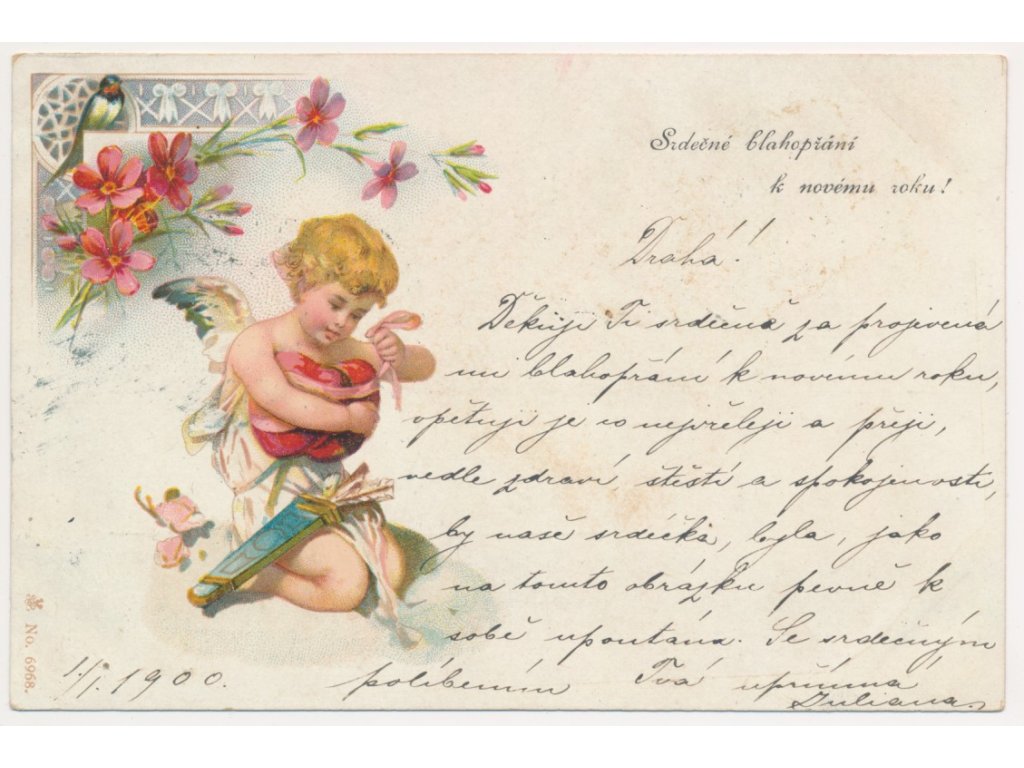 Srdečné blahopřání
k novému roku!
Drahá!
Děkuji Ti srdečně za projevená
mi blahopřání k novému roku,
opětuji je co nejvřeleji a přeji,
vedle zdraví, štěstí a spokojenosti,
by naše srdéčka, byla, jako
na tomto obrázku pevně k
sobě upoutána. Se srdečným
políbením Tvá upřímná
Juliana.
1./1. 1900.
No. 6968.